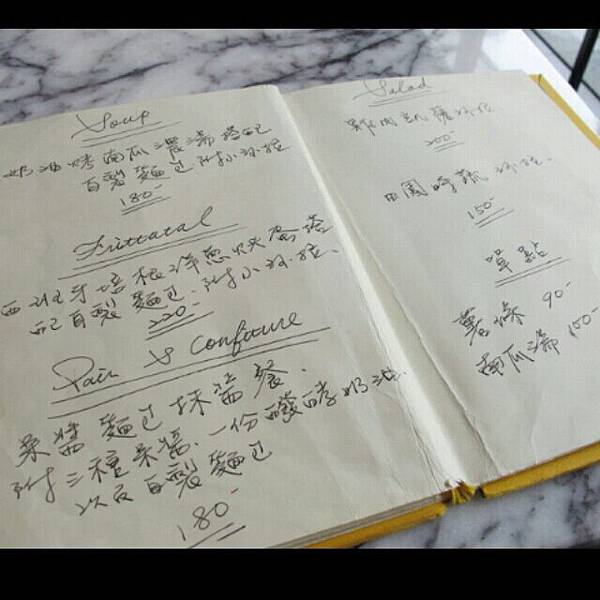 Soup
奶油烤南瓜濃湯搭配
自製麵包附小沙拉
180-
Frittatal
西班牙培根洋蔥烘蛋搭
配自製麵包.附小沙拉、
220-
Pain & Confiture
果醬麵包抹醬餐.
附三種果醬.一份發酵奶油.
以及自製麵包
180-
Salad
雞肉凱薩沙拉
200-
田園時蔬沙拉.
150-
單點
薯條 90-
南瓜湯 100-